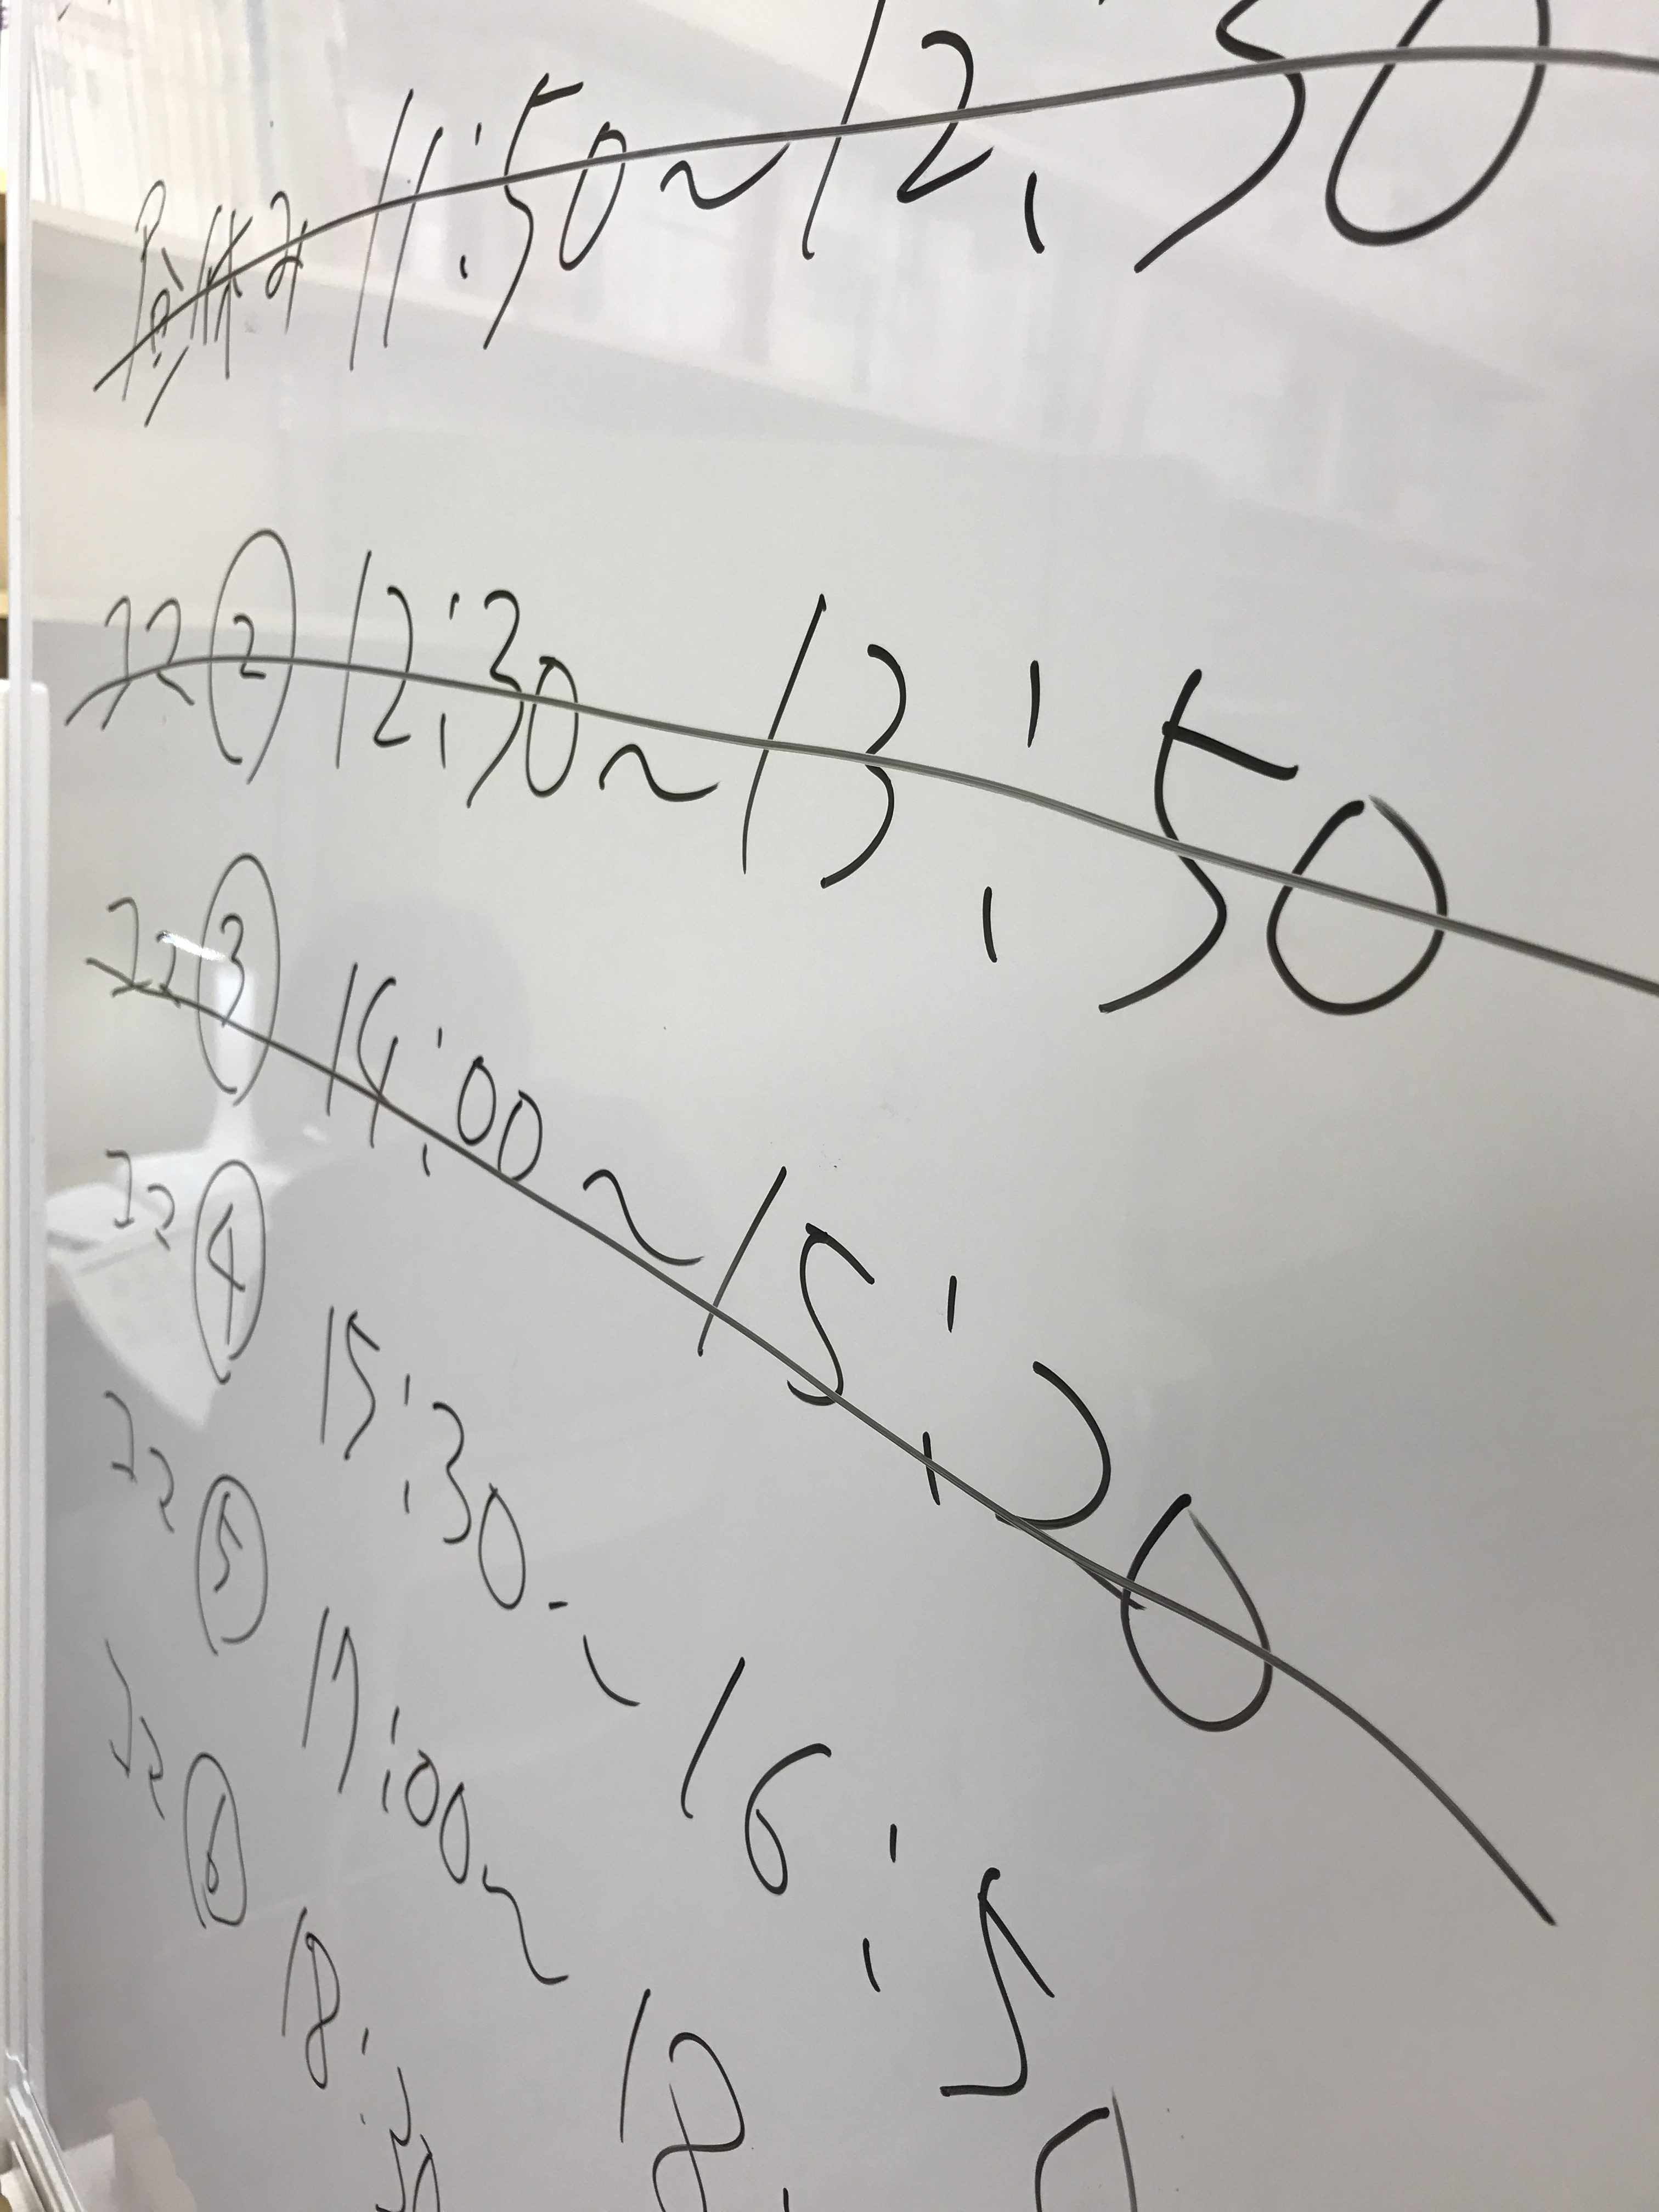 昼休み 11:50~12:30
コマ② 12:30~13:50
コマ③ 14:00~15:20
コマ④ 15:30~16:50
コマ⑤ 17:00~18:
コマ⑥ 18:30